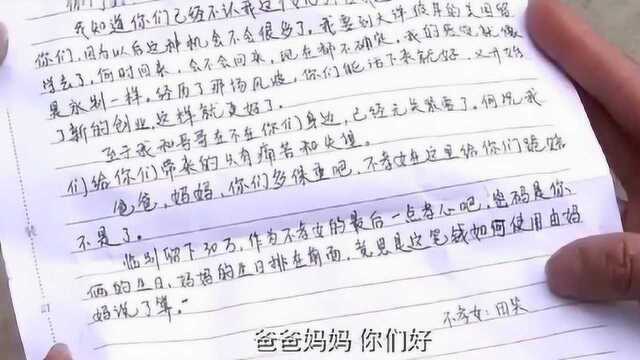 我知道你们已经不认我这个女儿
你们,因为以后这种机会不会很多了。我要到大洋彼岸的美国留
学去了,何时回来,会不会回来,现在都不确定,我们
是永别一样。经历了那场风波,你们能活下来就好,又开始
了新的创业,这样就更好了。
至于我和哥哥在不在你们身边,已经无关紧要了。何况我
们给你们带来的只有痛苦和失望。
爸爸,妈妈,你们多保重吧,不孝女在这里给你们跪
不是了。
临别留下30万,作为不孝女的最后一点孝心吧,密码是你
俩的生日,妈妈的生日排在前面,意思是这笔钱如何使用由妈
妈说了算。
不孝女:田笑
爸爸妈妈 你们好